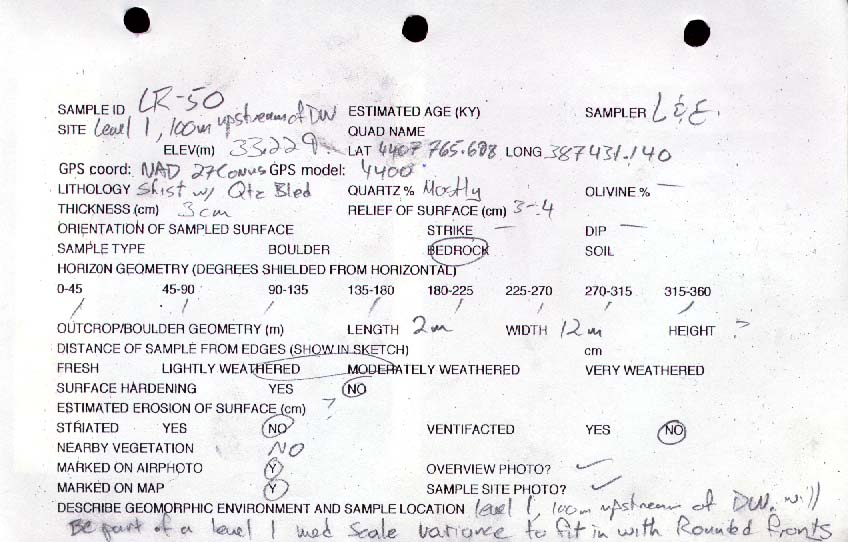 SAMPLE ID LR-50 ESTIMATED AGE (KY) SAMPLER L & E.
SITE level 1, 100m upstream of DW QUAD NAME
ELEV(m) 33.229 LAT 4407 765.698 LONG 387431.140
GPS coord: NAD 27 Conus GPS model: 4400
LITHOLOGY Shist w/ Qtz Bled QUARTZ % Mostly OLIVINE % —
THICKNESS (cm) 3cm RELIEF OF SURFACE (cm) 3-.4
ORIENTATION OF SAMPLED SURFACE STRIKE — DIP —
SAMPLE TYPE BOULDER BEDROCK SOIL
HORIZON GEOMETRY (DEGREES SHIELDED FROM HORIZONTAL)
0-45 45-90 90-135 135-180 180-225 225-270 270-315 315-360
/ / / / / / / /
OUTCROP/BOULDER GEOMETRY (m) LENGTH 2m WIDTH 12m HEIGHT ?
DISTANCE OF SAMPLE FROM EDGES (SHOW IN SKETCH) cm
FRESH LIGHTLY WEATHERED MODERATELY WEATHERED VERY WEATHERED
SURFACE HARDENING YES NO
ESTIMATED EROSION OF SURFACE (cm) ?
STRIATED YES NO VENTIFACTED YES NO
NEARBY VEGETATION NO
MARKED ON AIRPHOTO Y OVERVIEW PHOTO? ✓
MARKED ON MAP Y SAMPLE SITE PHOTO? ✓
DESCRIBE GEOMORPHIC ENVIRONMENT AND SAMPLE LOCATION level 1, 100m upstream of DW. will
Be part of a level 1 med scale variance to fit in with Rounted fronts